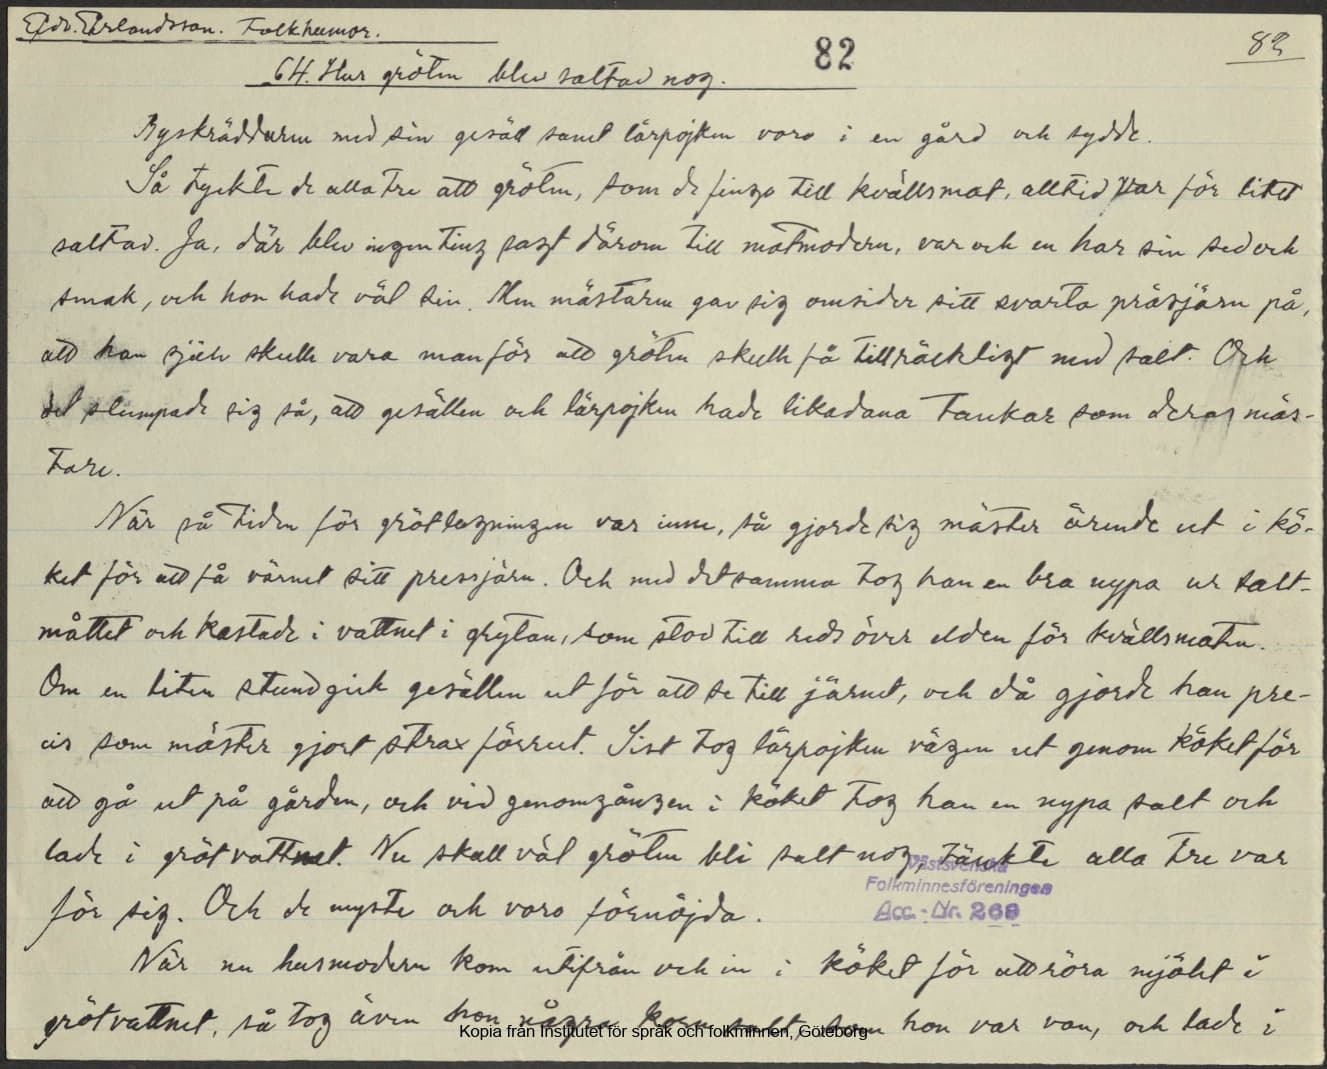 Edv. Erlandsson. Folkhumor.
82
82
64. Hur gröten blev saltad nog.
Byskräddaren med sin gesäll samt lärpojken voro i en gård och sydde.
Så tyckte de alla tre att gröten, som de fingo till kvällsmat, alltid var för litet
saltad. Ja, där blev ingenting sagt därom till matmodern, var och en har sin sed och
smak, och hon hade väl sin. Men mästaren gav sig omsider sitt svarta prässjärn på,
att han själv skulle vara man för att gröten skulle få tillräckligt med salt. Och
det slumpade sig så, att gesällen och lärpojken hade likadana tankar som deras mäs-
tare.
När så tiden för grötlagningen var inne, så gjorde sig mäster ärende ut i kö-
ket för att få värmt sitt pressjärn. Och med detsamma tog han en bra nypa ur salt-
måttet och kastade i vattnet i grytan, som stod till reds över elden för kvällsmaten.
Om en liten stund gick gesällen ut för att se till järnet, och då gjorde han pre-
cis som mäster gjort strax förrut. Sist tog lärpojken vägen ut genom köket för
att gå ut på gården, och vid genomgången i köket tog han en nypa salt och
lade i grötvattnet. Nu skall väl gröten bli salt nog, tänkte alla tre var
för sig. Och de myste och voro förnöjda.
Västsvenska
Folkminnesföreningen
Acc.-Nr. 268
När nu husmodern kom utifrån och in i köket för att röra mjölet i
grötvattnet, så tog även hon några korn salt, som hon var van, och lade i
Kopia från Institutet för språk och folkminnen, Göteborg